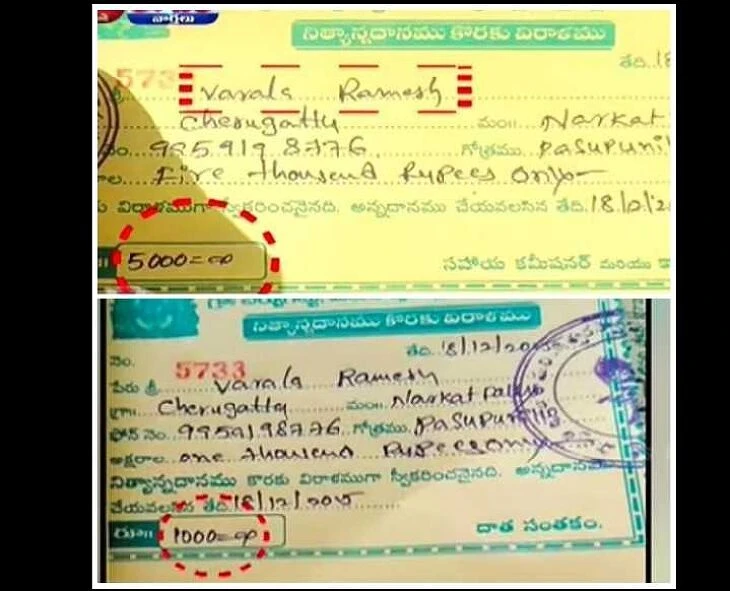 వార్తలు
నిత్యాన్నదానము కొరకు విరాళము
తేది.18
573
Varala Ramesh
Cherugatty మం॥ Narkat
నం. 9959198776 గోత్రము. Pasupunil
Five thousand Rupees only
విరాళముగా స్వీకరించనైనది. అన్నదానము చేయవలసిన తేది.18/2/2
5000=00
సహాయ కమీషనర్ మరియు కా
నిత్యాన్నదానము కొరకు విరాళము
నం. 5733 తేది.18/12/20
పేరు శ్రీ Varala Ramesh
గ్రా॥ Cherugatty మం॥ Narkat
ఫోన్ నెం. 9959198776 గోత్రము. Pasupunil
అక్షరాల one thousand Rupees only
నిత్యాన్నదానము కొరకు విరాళముగా స్వీకరించనైనది. అన్నదానము
చేయవలసిన తేది.18/12/2015
రూ॥ 1000=00
దాత సంతకం.